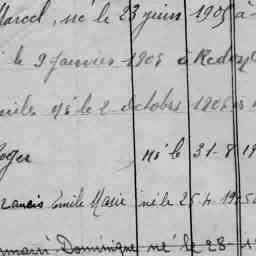 Marcel, né le 23 juin 1905 à
le 9 Janvier 1905 à Redon
né le 2 Octobre 1905
Roger né le 31-8 19
Francis Emile Marie né le 25-4 1905
Dominique né le 28-1